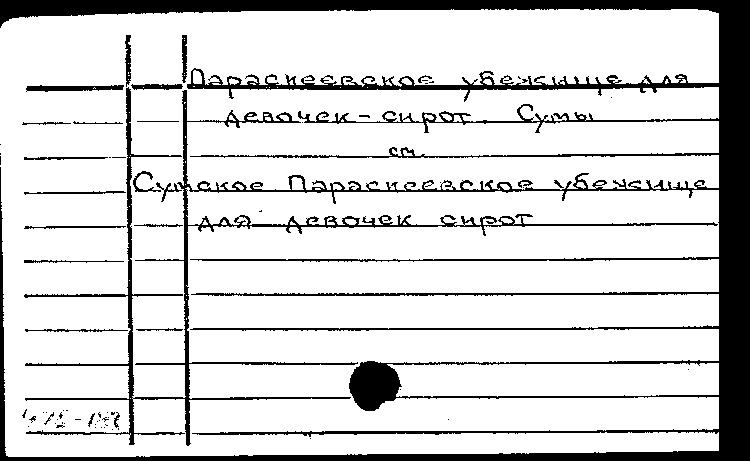 Параскеевское убежище для
девочек-сирот. Сумы
см.
Сумское Параскеевское убежище
для девочек сирот